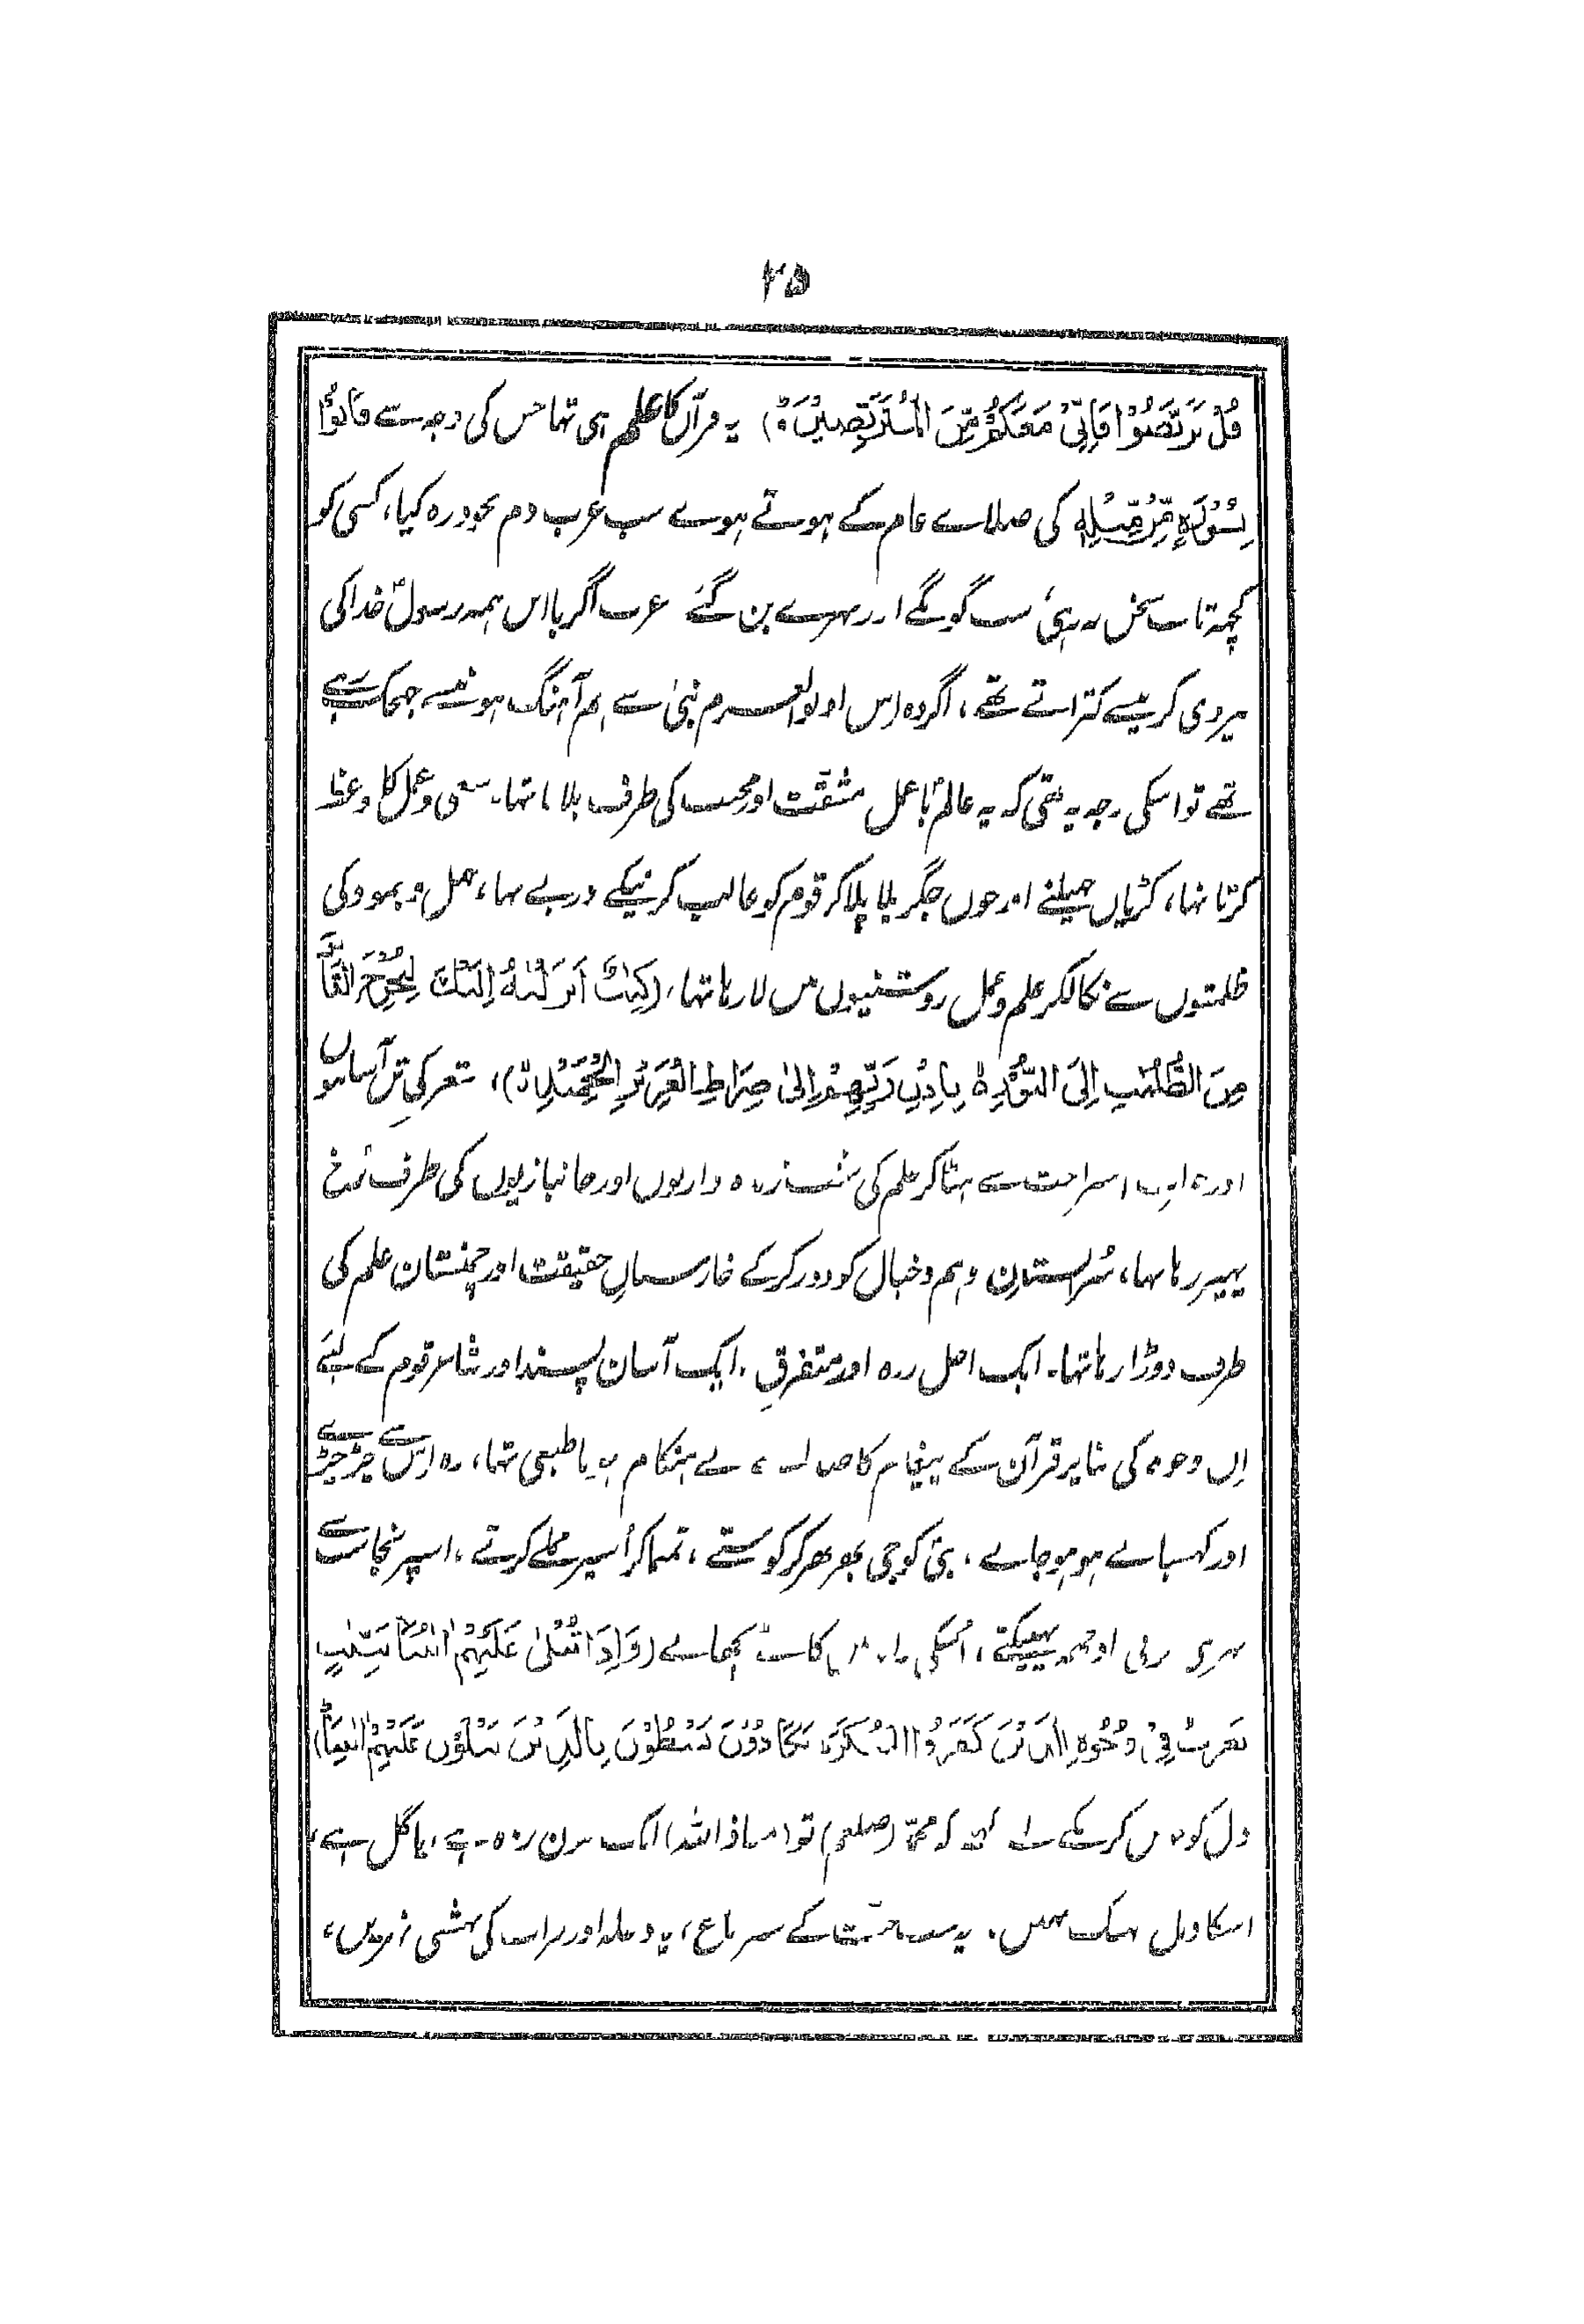 ۲۵
قُلْ تَرَبَّصُوْا فَاِنِّیْ مَعَکُمْ مِّنَ الْمُتَرَبِّصِیْنَ ۃ) یہ قرآن کا علم ہی تہا جس کی وجہ سے فَاتُوْا
بِسُوْرَۃٍ مِّنْ مِّثْلِہٖ کی صلاے عام کے ہوتے ہوے سب عرب دم بخود رہ گیا، کسی کو
کچہہ تاب سخن نہ رہی، سب گونگے اور بہرے بن گئے عرب اگر بااس ہمہ رسولؐ خدا کی
پیروی کرنیسے کتراتے تھے، اگر وہ اس اولوالعزم نبیؐ سے ہم آہنگ ہونیسے جہجکتے
تھے تو اسکی وجہ یہ تھی کہ یہ عالم باعمل مشقّت اور محنت کی طرف بلاتا تہا۔ سعی و عمل کا وعظ
کرتا تہا، کڑیاں جہیلنے اور خون جگر پلا پلا کر قوم کو غالب کرنیکے درپے تہا، جہل و جمود کی
ظلمتوں سے نکالکر علم و عمل روشنیوں میں لا رہا تہا، (کِتٰبٌ اَنْزَلْنٰہُ اِلَیْکَ لِتُخْرِجَ النَّاسَ
مِنَ الظُّلُمٰتِ اِلَی النُّوْرِ ۃ بِاِذْنِ رَبِّہِمْ اِلٰی صِرَاطِ الْعَزِیْزِ الْحَمِیْدِ ۃ)، شعر کی تن آسانیوں
اور اسراحت سے ہٹا کر علم کی ذمہ داریوں اور جانبازیوں کی طرف رُخ
پہیر رہا تہا، وہم و خیال کو دور کرکے خارستانِ حقیقت اور چمنستان علم کی
طرف دوڑا رہا تہا۔ ایک اور متفرق، ایک آسان پسند اور شاعر قوم کے لیئے
اِن وجوہ کی بنا پر قرآن کے پیغام کا بے ہنگام ہونا طبعی تہا، وہ اِس سے چڑ چڑے
اور کہسیانے ہو ہو جاتے، نبیؐ کو جی بھر بھر کر کوستے، تمتما کر اُسپر حملے کرتے، اسپر نجاست سے
بھری اوجہہ پہینکتے، اُسکی راہ میں کانٹے بچھاتے (وَاِذَا تُتْلٰی عَلَیْہِمْ اٰیٰتُنَا بَیِّنٰتٍ
تَعْرِفُ فِیْ وُجُوْہِ الَّذِیْنَ کَفَرُوا الْمُنْکَرَ یَکَادُوْنَ یَسْطُوْنَ بِالَّذِیْنَ یَتْلُوْنَ عَلَیْہِمْ اٰیٰتِنَا)
دل کو کرنیکے لئے کہتے کہ محمّد (صلعم) تو (معاذ اللہ) ایک جن زدہ ہے، پاگل ہے،
اسکا دل نہیں، یہ سب جنّت کے سبز باغ، یہ کی بہشتی نہریں،